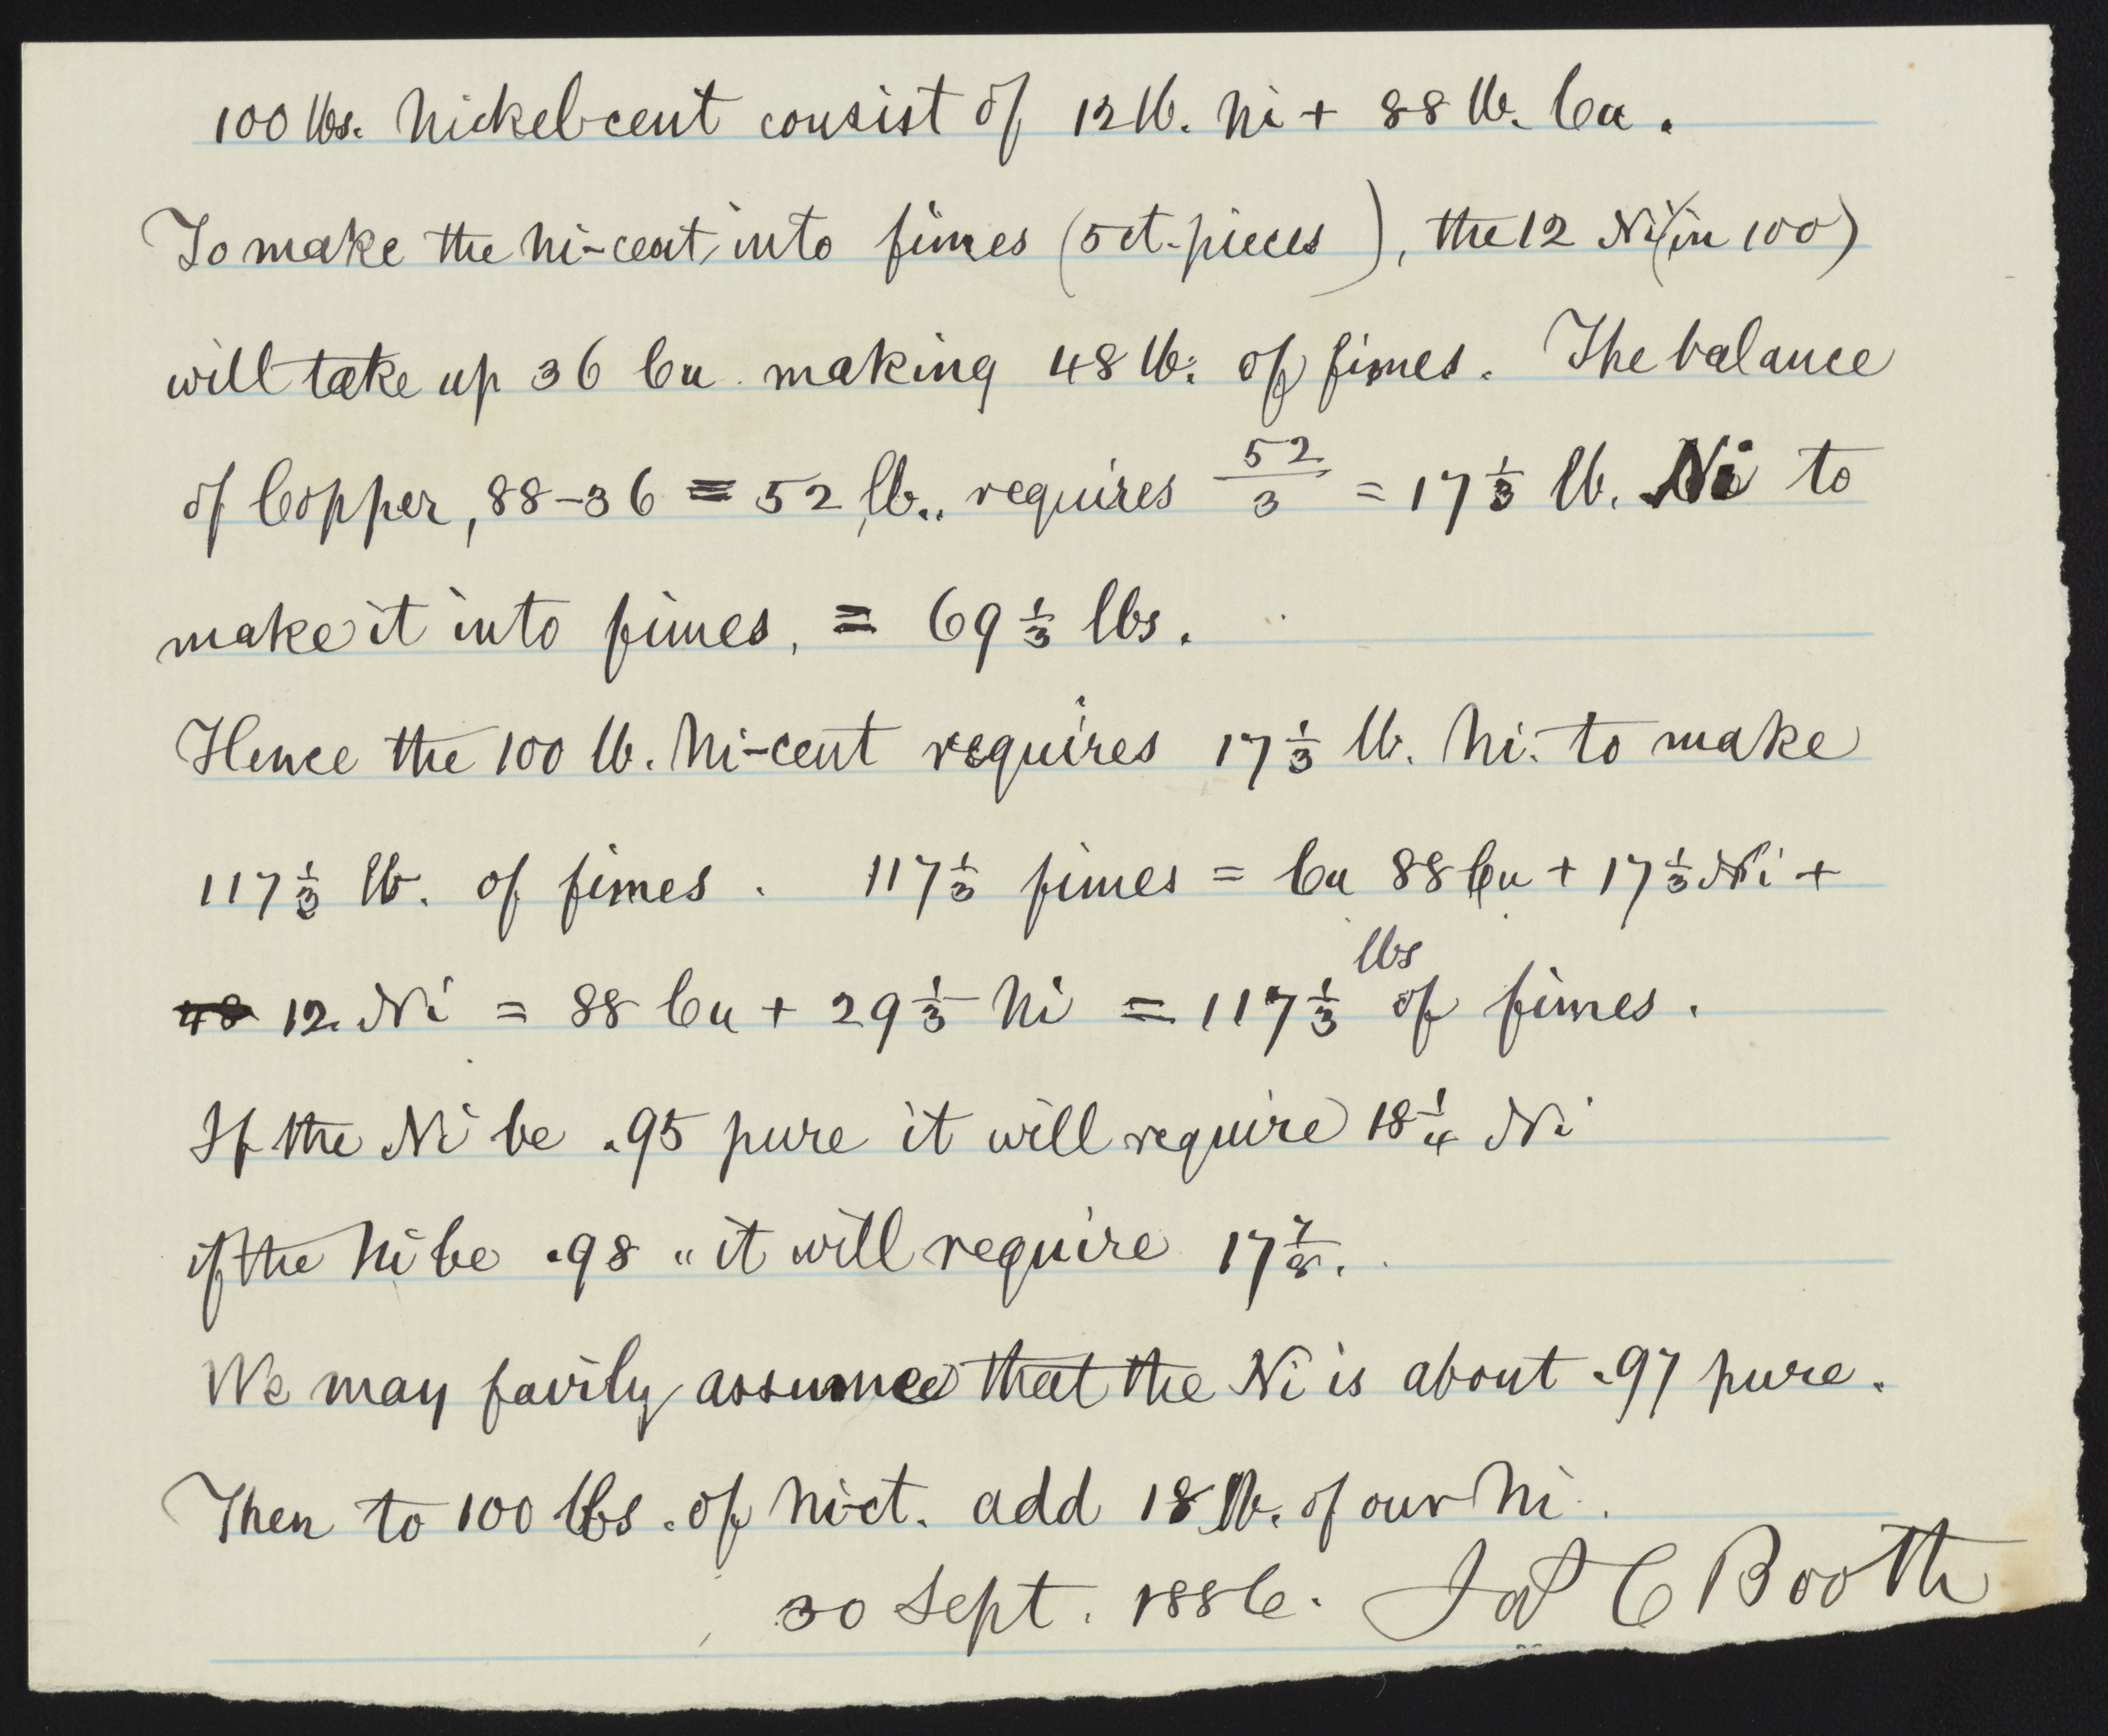 100 lbs. Nickel-cent consist of 12 lb. Ni + 88 lb. Cu.
To make the Ni-cent into fimes (5 ct. pieces), the 12 Ni (in 100)
will take up 36 Cu making 48 lb. of fimes. The balance
of Copper, 88-36 = 52 lb., requires 52/3 = 17 1/3 lb. Ni to
make it into fimes, = 69 1/3 lbs.
Hence the 100 lb. Ni-cent requires 17 1/3 lb. Ni. to make
117 1/3 lb. of fimes. 117 1/3 fimes = Cu 88 Cu + 17 1/3 Ni +
48 12. Ni = 88 Cu + 29 1/3 Ni = 117 1/3 lbs of fimes.
If the Ni be .95 pure it will require 18 1/4 Ni
if the Ni be .98 " it will require 17 7/8.
We may fairily assume that the Ni is about .97 pure.
Then to 100 lbs. of Ni-ct. add 18 lb. of our Ni.
30 Sept. 1886. Jas C Booth